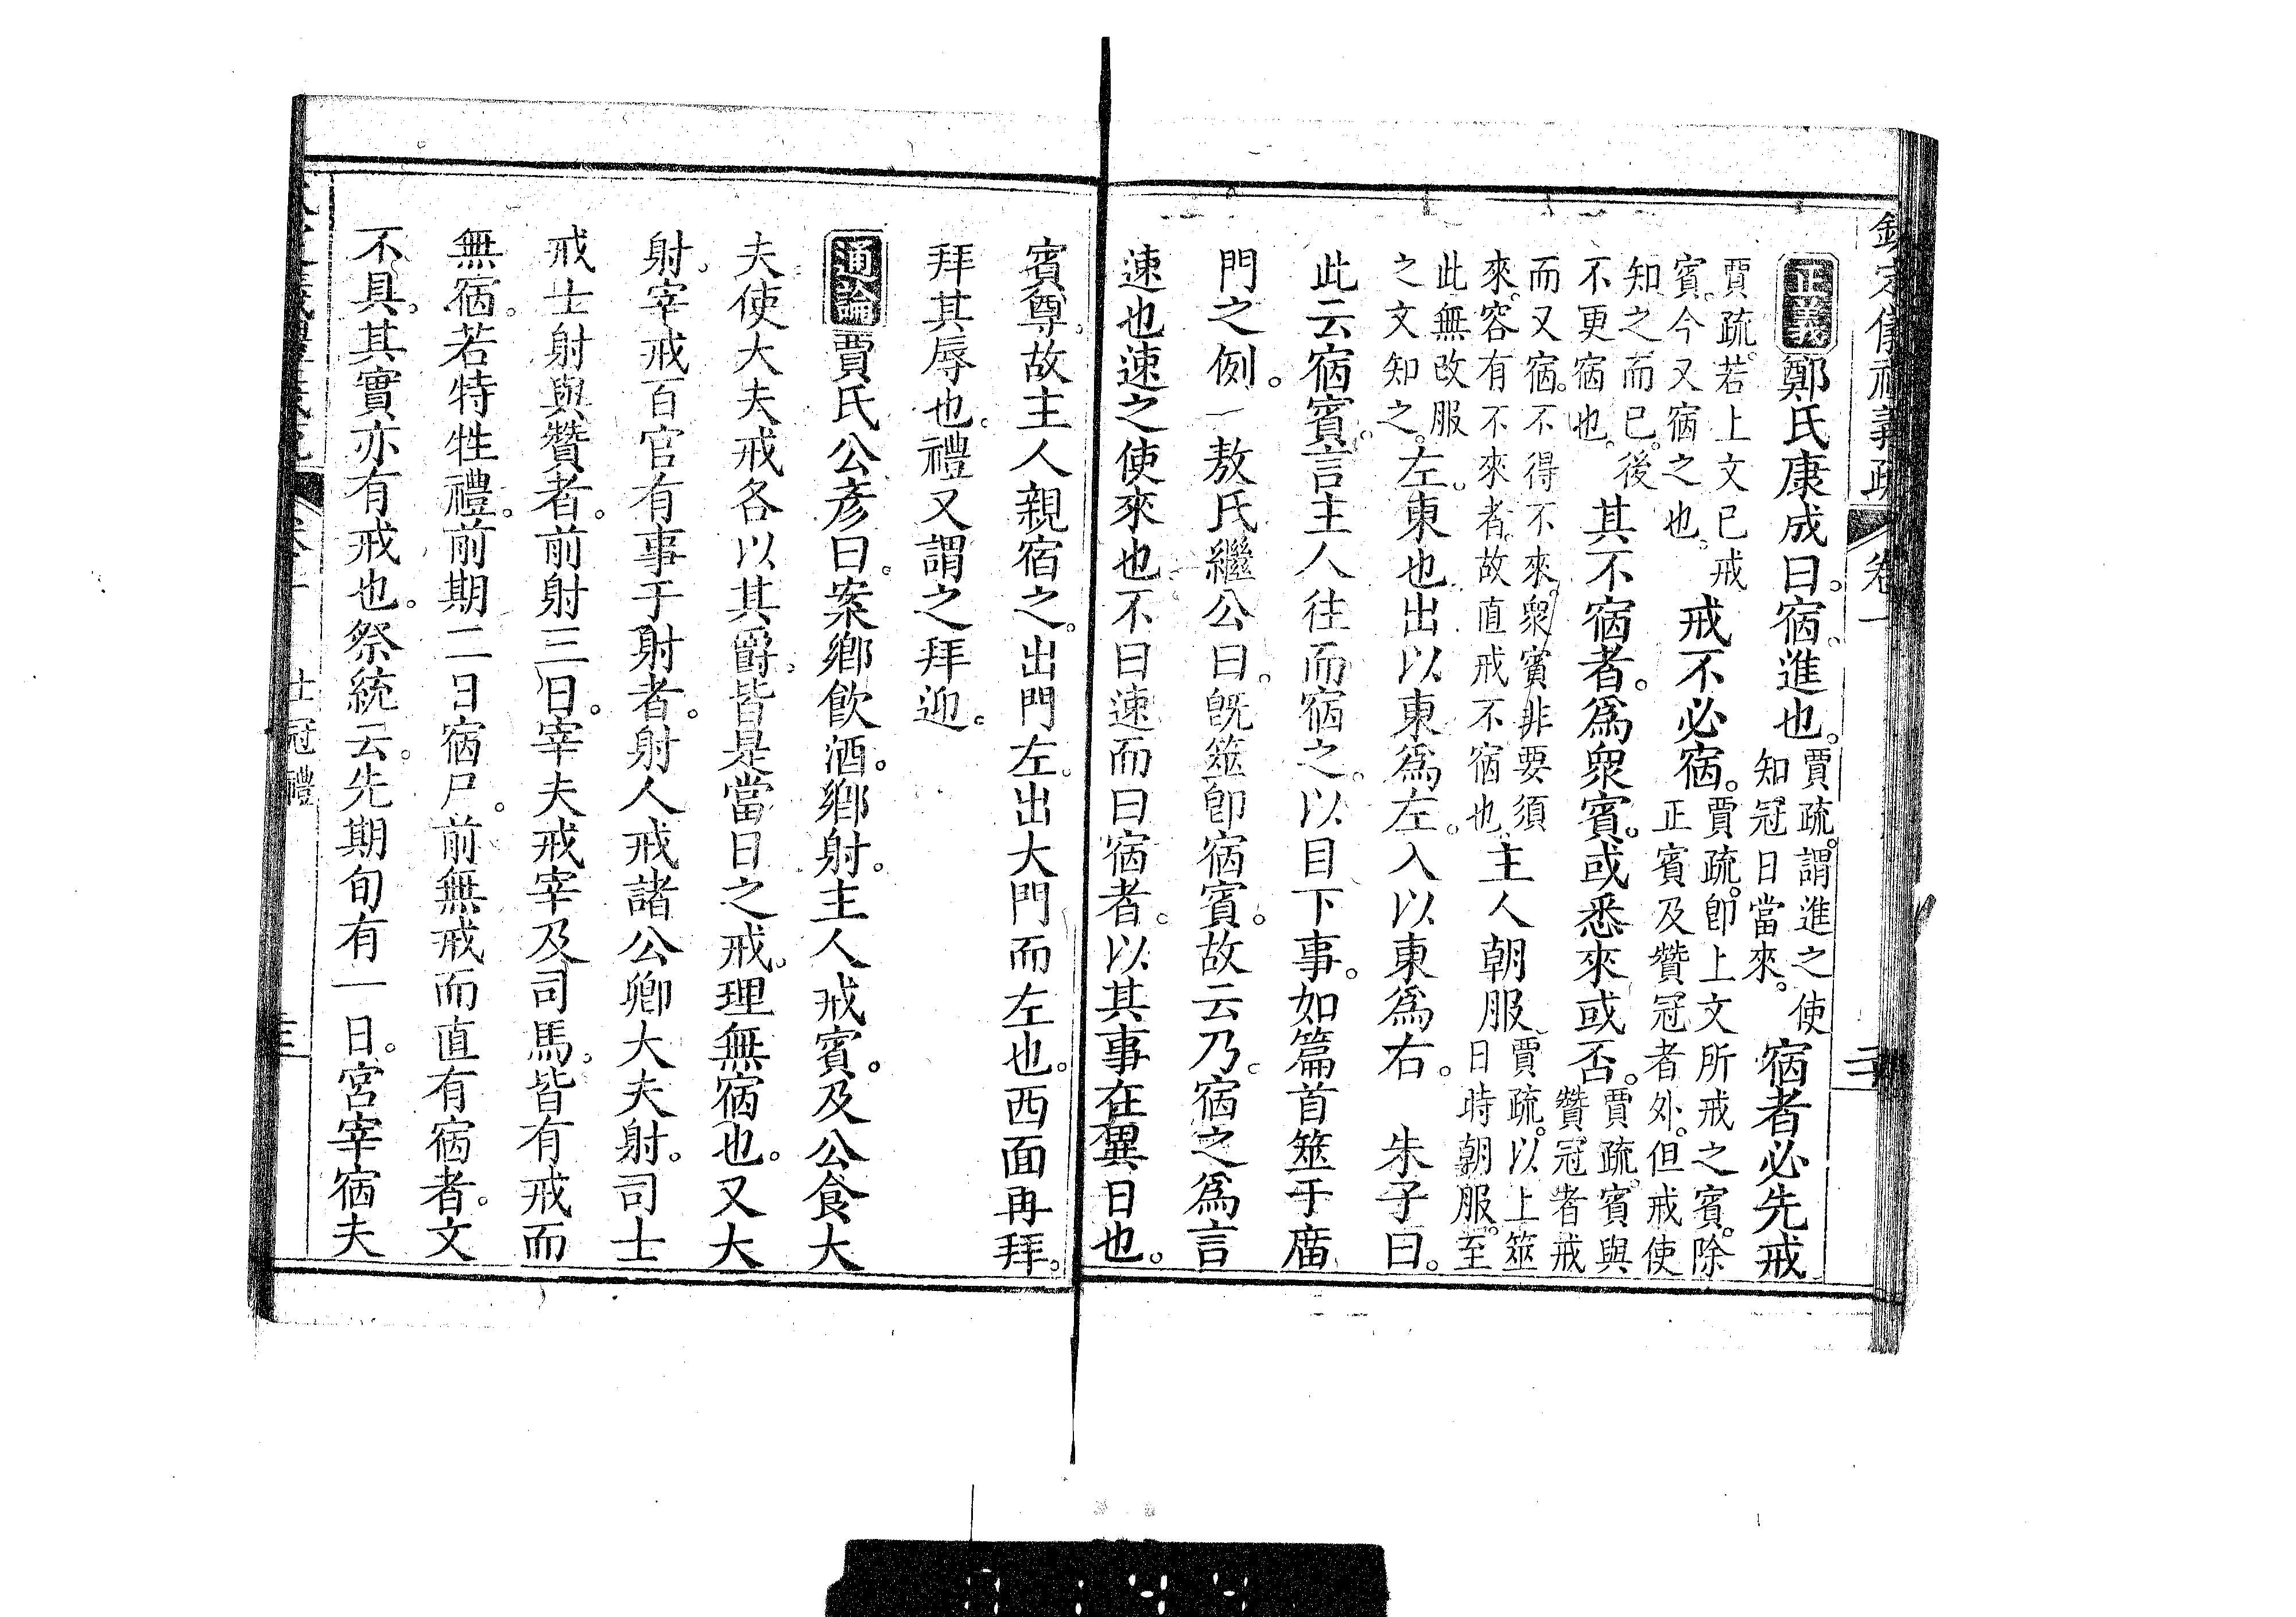 欽定儀禮義疏 卷一
正義鄭氏康成曰。宿。進也。賈疏。謂進之使
知冠日當來。宿者必先戒
賈疏。若上文已戒
賓。今又宿之也。戒不必宿。賈疏。卽上文所戒之賓。除
正賓及贊冠者外。但戒使
知之而已。後
不更宿也。其不宿者。爲衆賓。或悉來或否。賈疏。賓與
贊冠者戒
而又宿。不得不來。衆賓非要須
來。容有不來者。故直戒不宿也。主人朝服。賈疏。以上筮
日時朝服。至
此無改服
之文知之。左。東也。出以東爲左。入以東爲右。 朱子曰。
此云宿賓。言主人往而宿之。以目下事。如篇首筮于庿
門之例。 敖氏繼公曰。旣筮卽宿賓。故云乃。宿之爲言
速也速之使來也不曰速而曰宿者。以其事在異日也。
賓尊。故主人親宿之。出門左。出大門而左也。西面再拜。
拜其辱也。禮又謂之拜迎。
通論賈氏公彥曰。案鄉飮酒。鄉射。主人戒賓。及公食大
夫使大夫戒各以其爵。皆是當日之戒。理無宿也。又大
射。宰戒百官有事于射者。射人戒諸公卿大夫射。司士
戒士射與贊者。前射三日。宰夫戒宰及司馬。皆有戒而
無宿。若特牲禮。前期二日宿尸。前無戒而直有宿者。文
不具。其實亦有戒也。祭統云。先期旬有一日。宮宰宿夫
士冠禮